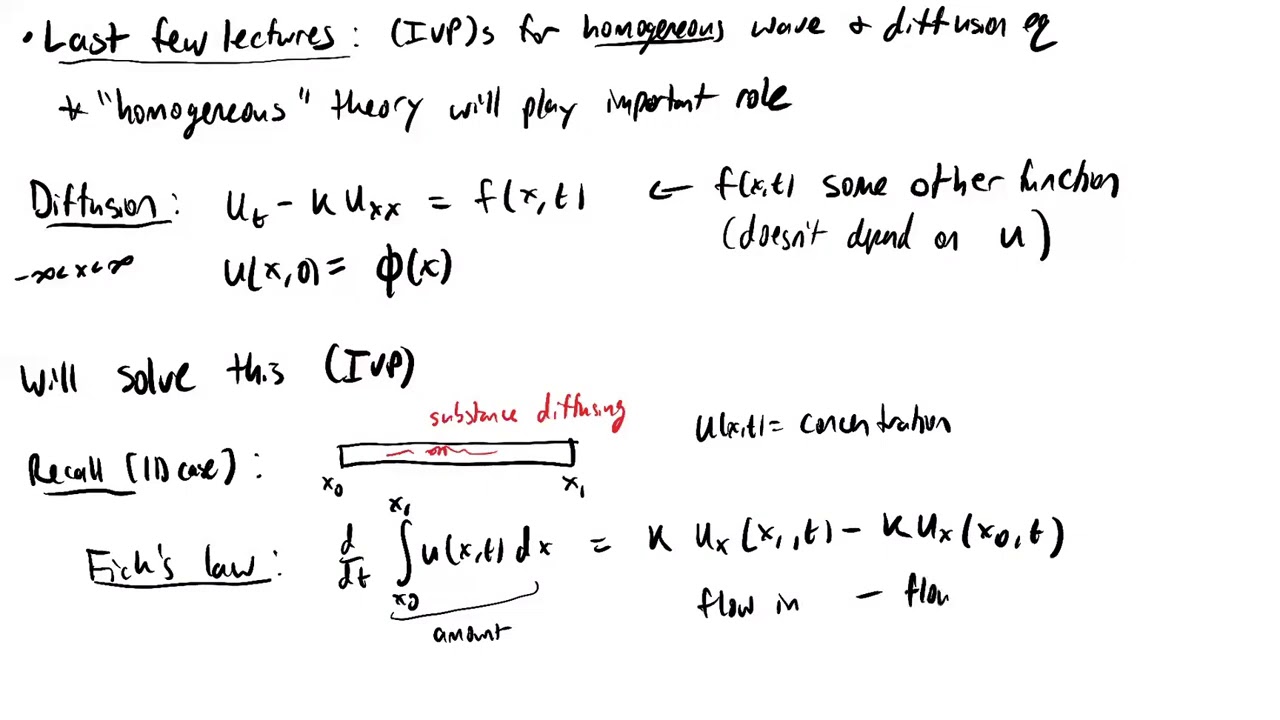 • Last few lectures: (IVP)s for homogeneous wave & diffusion eq
* "homogeneous" theory will play important role
Diffusion: u_t - k u_xx = f(x,t) ← f(x,t) some other function
(doesn't depend on u)
-∞<x<∞ u(x,0) = φ(x)
Will solve this (IVP)
substance diffusing
u(x,t) = concentration
Recall (1D case):
x_0 x_1
Fick's law: d/dt ∫_{x_0}^{x_1} u(x,t) dx = k u_x(x_1,t) - k u_x(x_0,t)
flow in - flow
amount